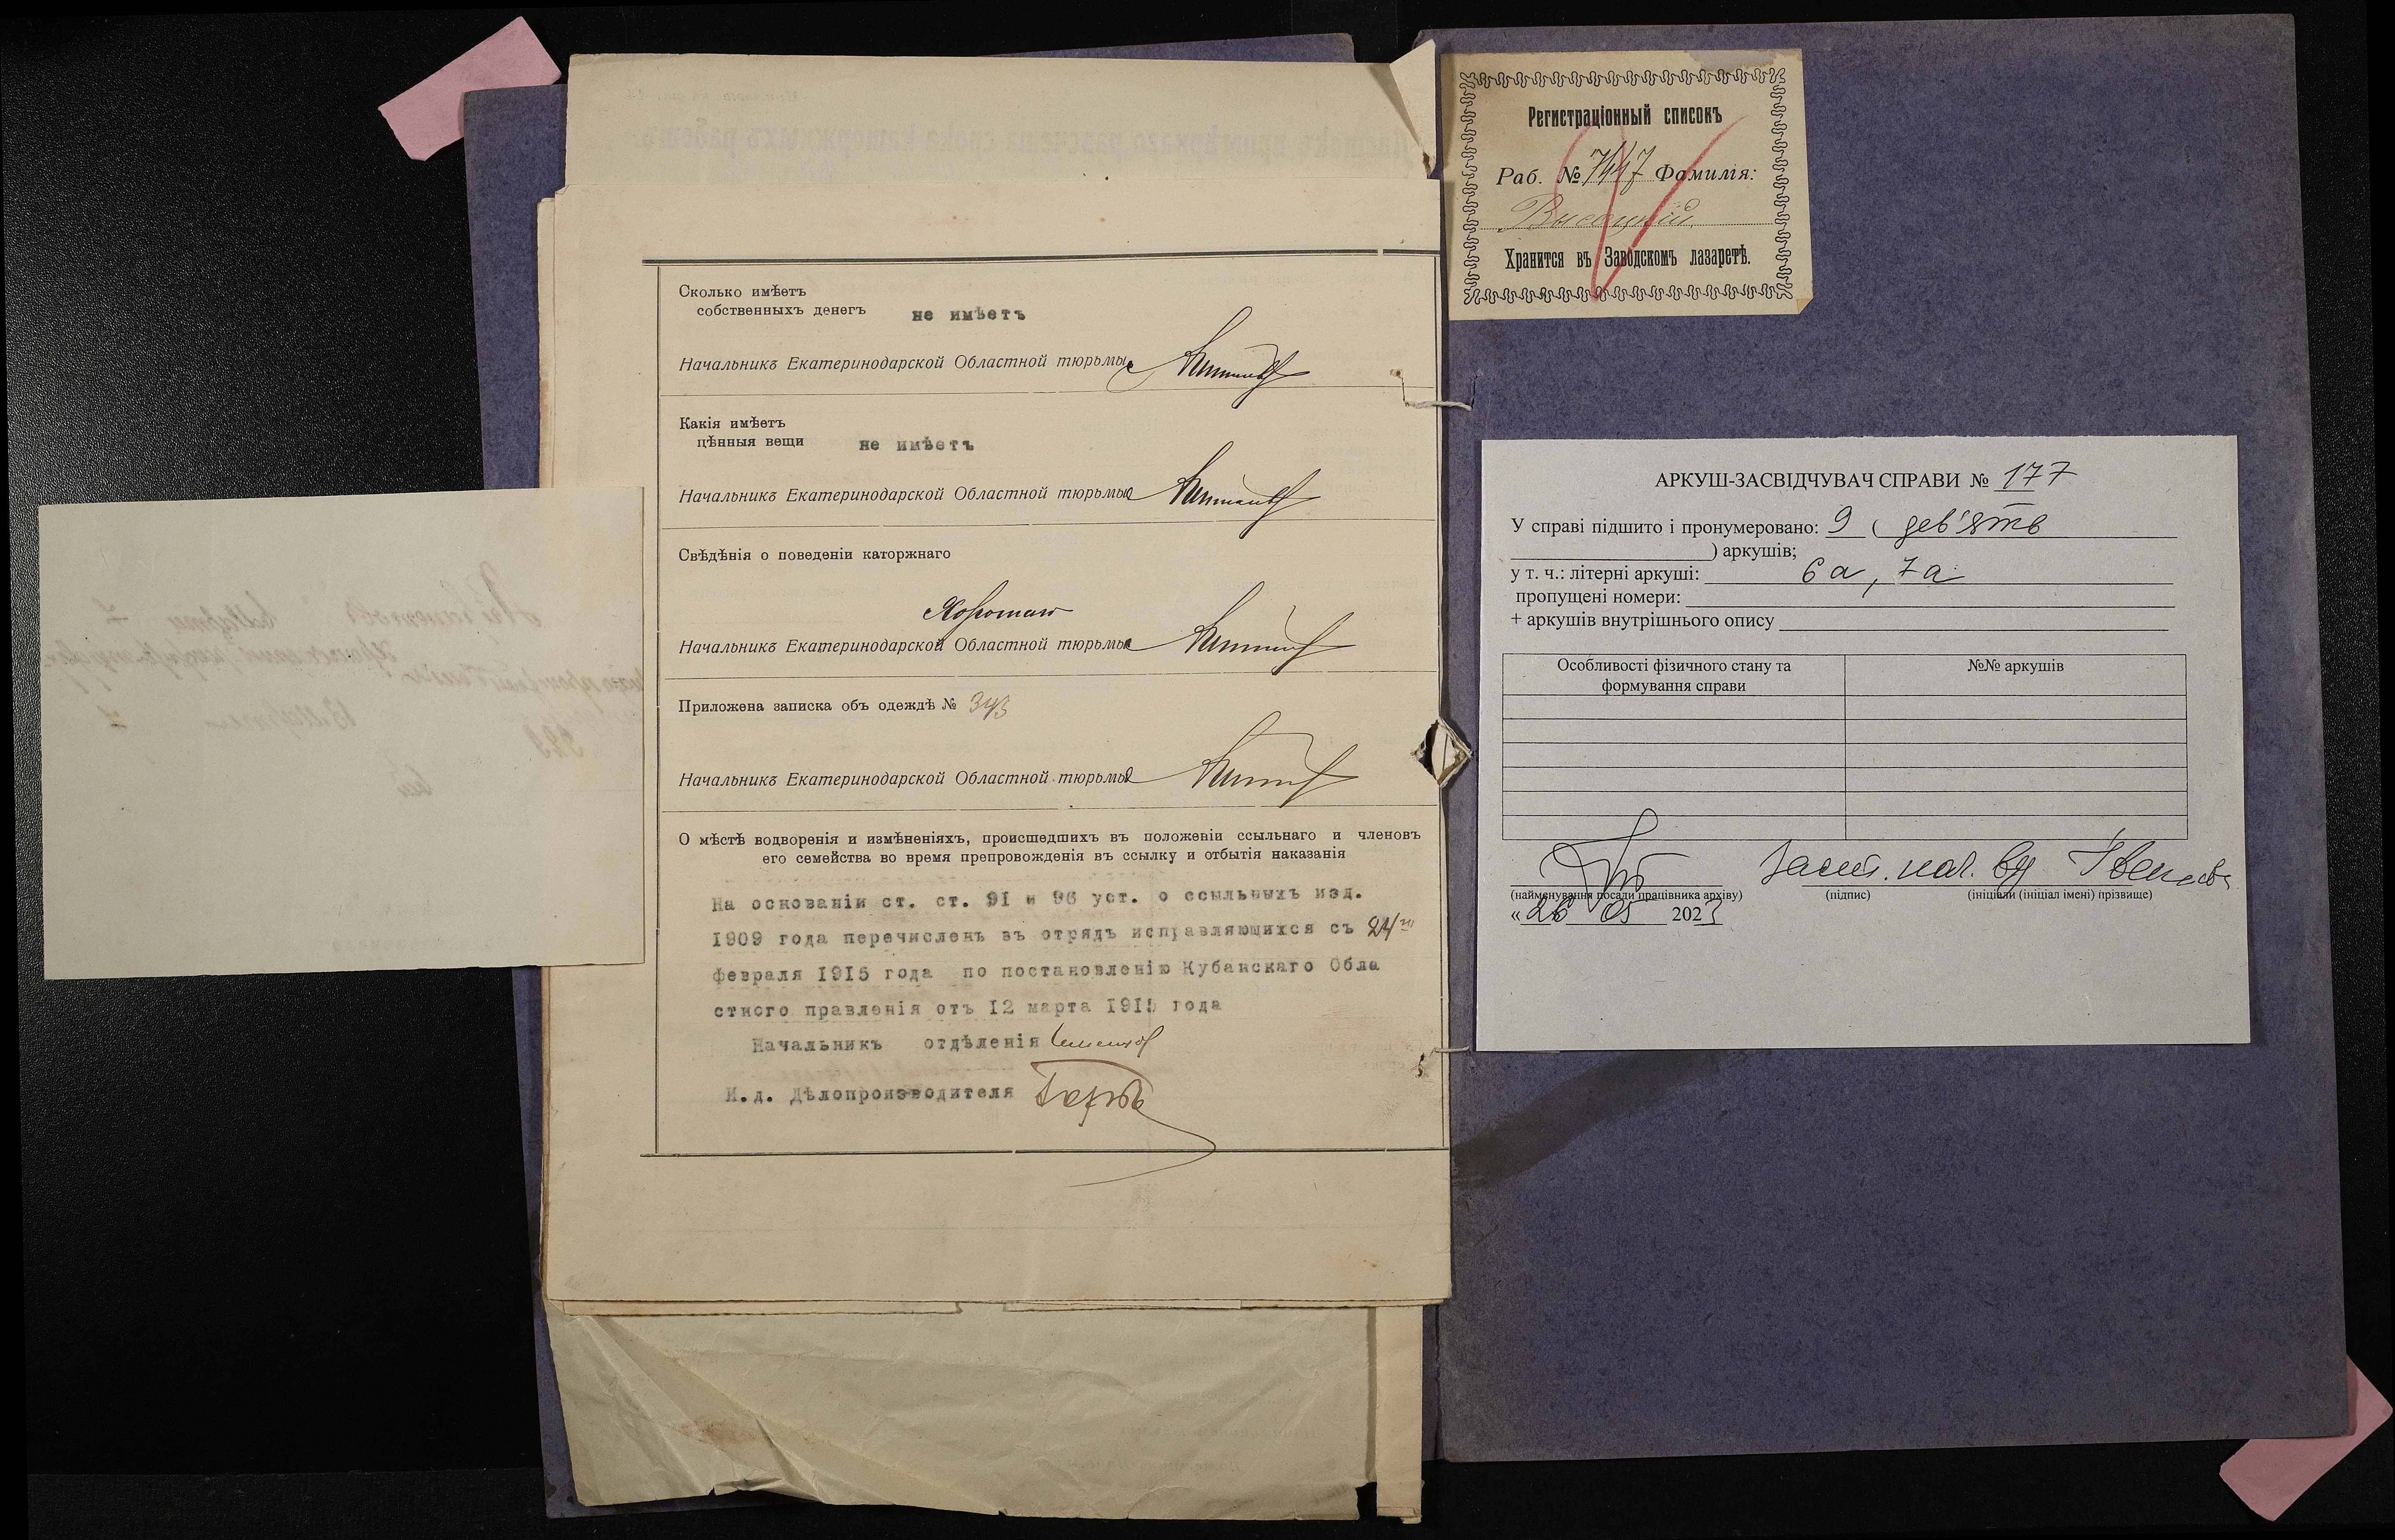 Сколько имѣетъ
собственныхъ денегъ не имѣетъ
Начальникъ Екатеринодарской Областной тюрьмы
Какія имѣетъ
цѣнныя вещи не имѣетъ
Начальникъ Екатеринодарской Областной тюрьмы
Свѣдѣнія о поведеніи каторжнаго
Хорошаго
Начальникъ Екатеринодарской Областной тюрьмы
Приложена записка объ одеждѣ № 343
Начальникъ Екатеринодарской Областной тюрьмы
О мѣстѣ водворенія и измѣненіяхъ, происшедшихъ въ положеніи ссыльнаго и членовъ
его семейства во время препровожденія въ ссылку и отбытія наказанія
На основаніи ст. ст. 91 и 96 уст. о ссыльныхъ изд.
1909 года перечисленъ въ отрядъ исправляющихся съ 24го
февраля 1915 года по постановленію Кубанскаго Обла
стного правленія отъ 12 марта 1915 года
Начальникъ отдѣленія
И.д. Дѣлопроизводителя
Регистраціонный списокъ
Раб. № 7447 Фамилія:
Высоцкій
Хранится въ Заводскомъ лазаретѣ.
АРКУШ-ЗАСВІДЧУВАЧ СПРАВИ № 177
У справі підшито і пронумеровано: 9 ( дев'ять
) аркушів;
у т. ч.: літерні аркуші: 6а, 7а
пропущені номери:
+ аркушів внутрішнього опису
Особливості фізичного стану та
формування справи
№№ аркушів
(найменування посади працівника архіву) (підпис) (ініціали (ініціал імені) прізвище)
«26 05 202